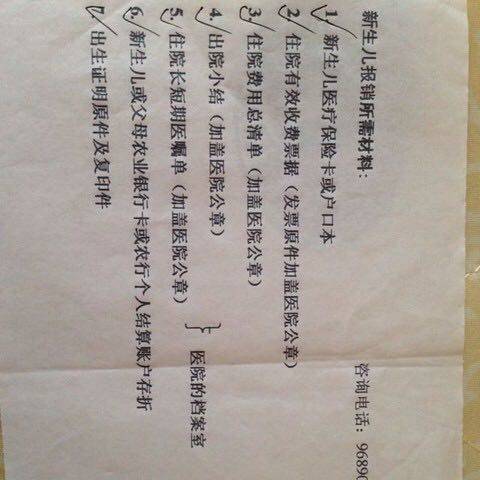 新生儿报销所需材料:
咨询电话: 9689
1、新生儿医疗保险卡或户口本
2、住院有效收费票据（发票原件加盖医院公章）
3、住院费用总清单（加盖医院公章）
4、出院小结（加盖医院公章）
5、住院长短期医嘱单（加盖医院公章）
医院的档案室
6、新生儿或父母农业银行卡或农行个人结算账户存折
7、出生证明原件及复印件